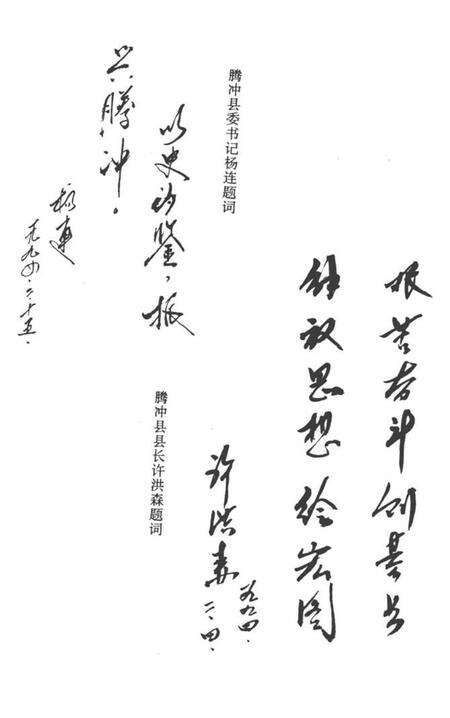 腾冲县委书记杨连题词
以史为鉴，振
兴腾冲。
杨连
一九九四.二.十五.
艰苦奋斗创基业
解放思想绘宏图
许洪森
一九九四.
二.四.
腾冲县县长许洪森题词